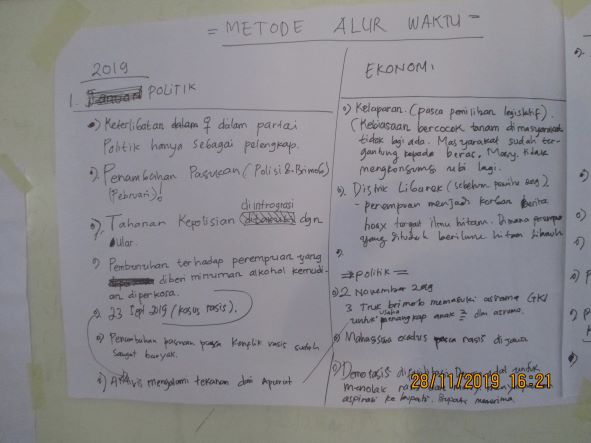 = METODE ALUR WAKTU =
2019
1. POLITIK
Keterlibatan dalam ♀ dalam partai
Politik hanya sebagai pelengkap.
Penambahan Pasukan (Polisi & Brimob)
(Februari)!
Tahanan Kepolisian diintrograsi dgn
Ular.
Pembunuhan terhadap perempuan yang
diberi minuman alkohol kemudi-
an diperkosa.
23 Sept 2019 (kasus rasis).
Penambahan pasukan pasca konflik rasis sudah
sangat banyak.
Aktivis mengalami tekanan dari aparat
EKONOMI
Kelaparan. (pasca pemilihan legislatif).
(Kebiasaan bercocok tanam dimasyarakat
tidak lagi ada. Masyarakat sudah ter-
gantung kepada beras, Masy. tidak
mengkonsumsi ubi lagi.
Distrik (sebelum
- perempuan menjadi korban berita
hoax terkait ilmu hitam. Dimana perempuan
yang dituduh berilmu hitam
=> politik =
2 November 2019
3 Truk brimob memasuki asrama GKI
untuk menangkap anak 2 dari asrama.
Mahasiswa exodus pasca rasis di jawa
Demotasis untuk
menolak
aspirasi ke bupati. Bupati menerima.
28/11/2019 16:21